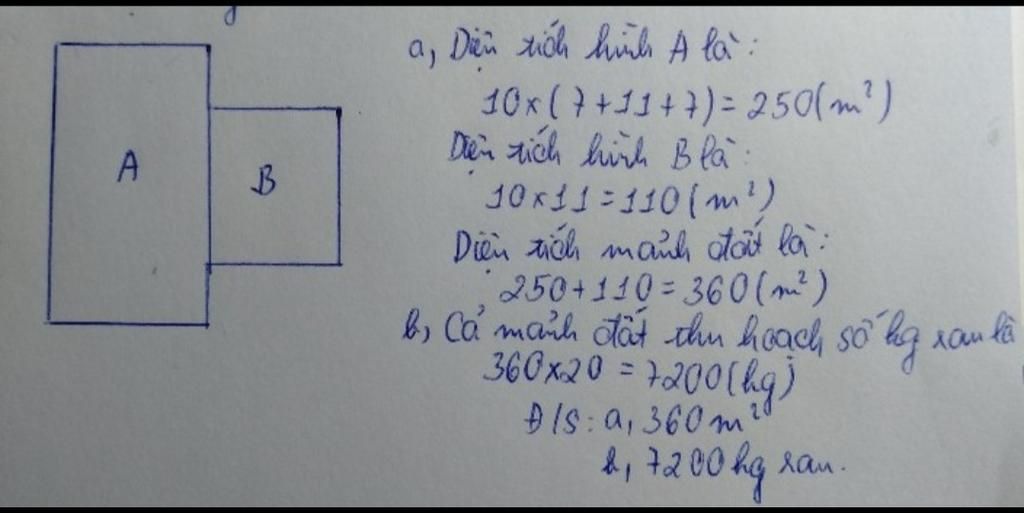 A
B
a, Diện tích hình A là:
10×(7+11+7)=250(m²)
Diện tích hình B là:
10×11=110(m²)
Diện tích mảnh đất là:
250+110=360(m²)
b, Cả mảnh đất thu hoạch số kg rau là
360×20=7200(kg)
Đ/S: a, 360m²
b, 7200kg rau.